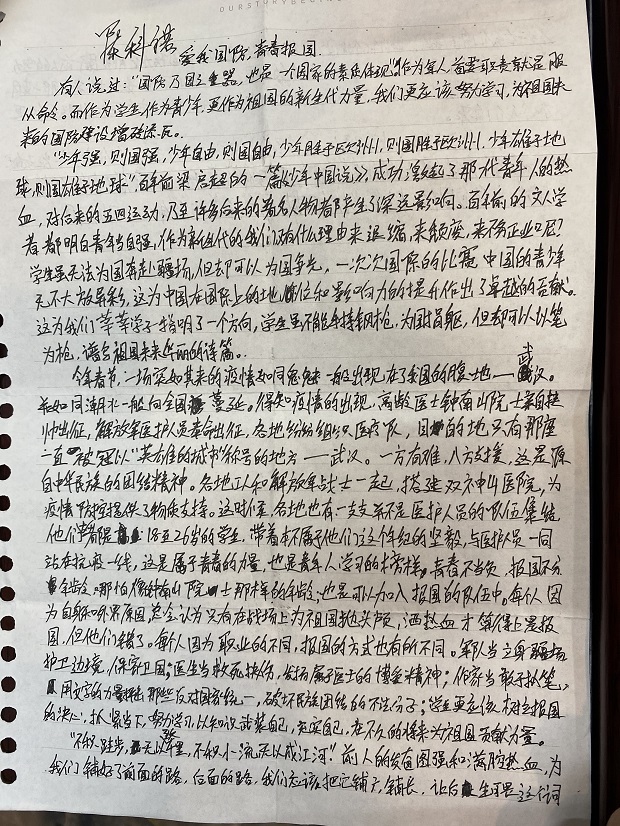 OUR STORY BEGINS
爱我国防，青春报国
有人说过：“国防乃国之重器，也是一个国家的素质体现”，作为军人，首要职责就是服
从命令。而作为学生，作为青少年，更作为祖国的新生代力量，我们更应该努力学习，为祖国未
来的国防建设增砖添瓦。
“少年强，则国强，少年自由，则国自由，少年胜于欧洲，则国胜于欧洲，少年雄于地
球，则国雄于地球”，百年前梁启超的一篇《少年中国说》，成功激起了那一代青年人的热
血，对后来的五四运动，乃至许多后来的著名人物都产生了深远影响。百年前的文人学
者都明白青年当自强，作为新生代的我们有什么理由来退缩，来颓废，来不务正业呢？
学生虽无法为国奔赴疆场，但却可以为国争光，一次次国际的比赛，中国的青少年
无不大放异彩，这为中国在国际上的地位和影响力的提升作出了卓越的贡献。
这为我们莘莘学子指明了一个方向，学生虽不能手持钢枪，为国捐躯，但却可以以笔
为枪，谱写祖国未来华丽的诗篇。
今年春节，一场突如其来的疫情如同鬼魅一般出现在了我国的腹地——武汉。
并如同潮水一般向全国蔓延。得知疫情的出现，高龄医士钟南山院士亲自挂
帅出征，解放军医护人员奉命出征，各地纷纷组织医疗队，目的地只有那座
一直被冠以“英雄的城市”称号的地方——武汉。一方有难，八方支援，这是源
自中华民族的团结精神。各地工人和解放军战士一起，搭建双神山医院，为
疫情防控提供了物质支持。这时候，各地也有一支并不是医护人员的队伍集结，
他们都是18至26岁的学生，带着本不属于他们这个年纪的坚毅，与医护人员一同
站在抗疫一线，这是属于青春的力量，也是青年人学习的榜样，青春不当负，报国不分
年龄。哪怕像钟南山院士那样的年龄，也是可以加入报国的队伍中。每个人因
为自身和外界原因，总会认为只有在战场上为祖国抛头颅，洒热血才算得上是报
国，但他们错了。每个人因为职业的不同，报国的方式也有所不同。军队当立身疆场
护卫边境，保家卫国；医生当救死扶伤，发扬属于医士的博爱精神；作家当敢于执笔，
用文字的力量挫那些反对国家统一，破坏民族团结的不法分子；学生更应该树立报国
的决心，抓紧当下，努力学习，以知识武装自己，充实自己，在不久的将来为祖国贡献力量。
“不积跬步，无以至千里，不积小流无以成江河”，前人的奋发图强和满腔热血，为
我们铺好了前面的路，后面的路，我们应该把它铺大，铺长，让后生可畏这个词